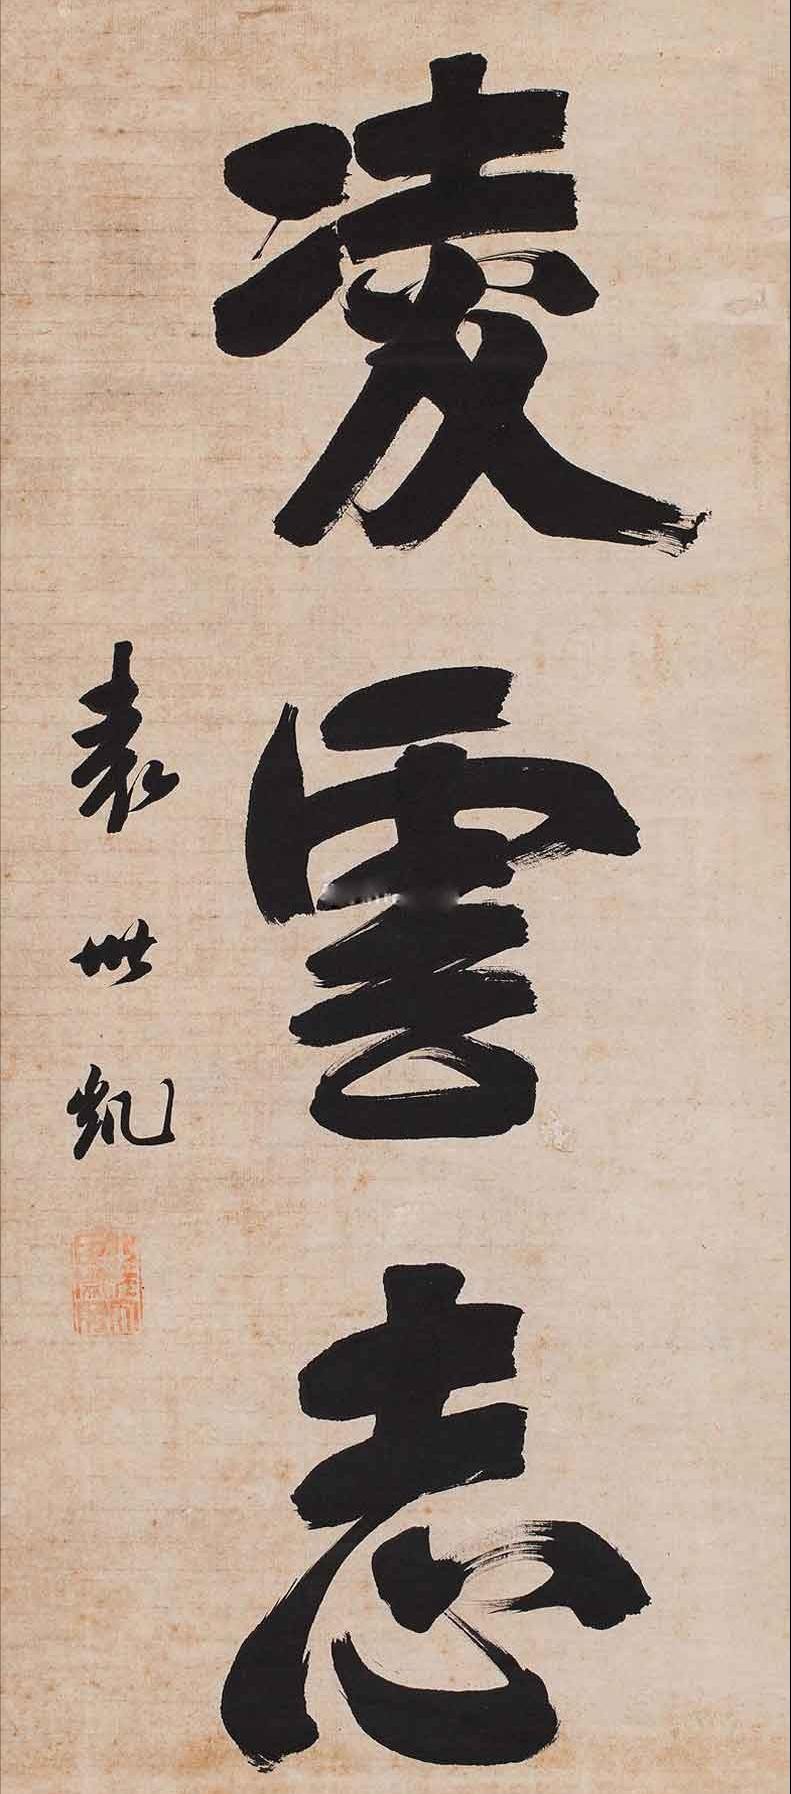 凌雲志
袁世凱